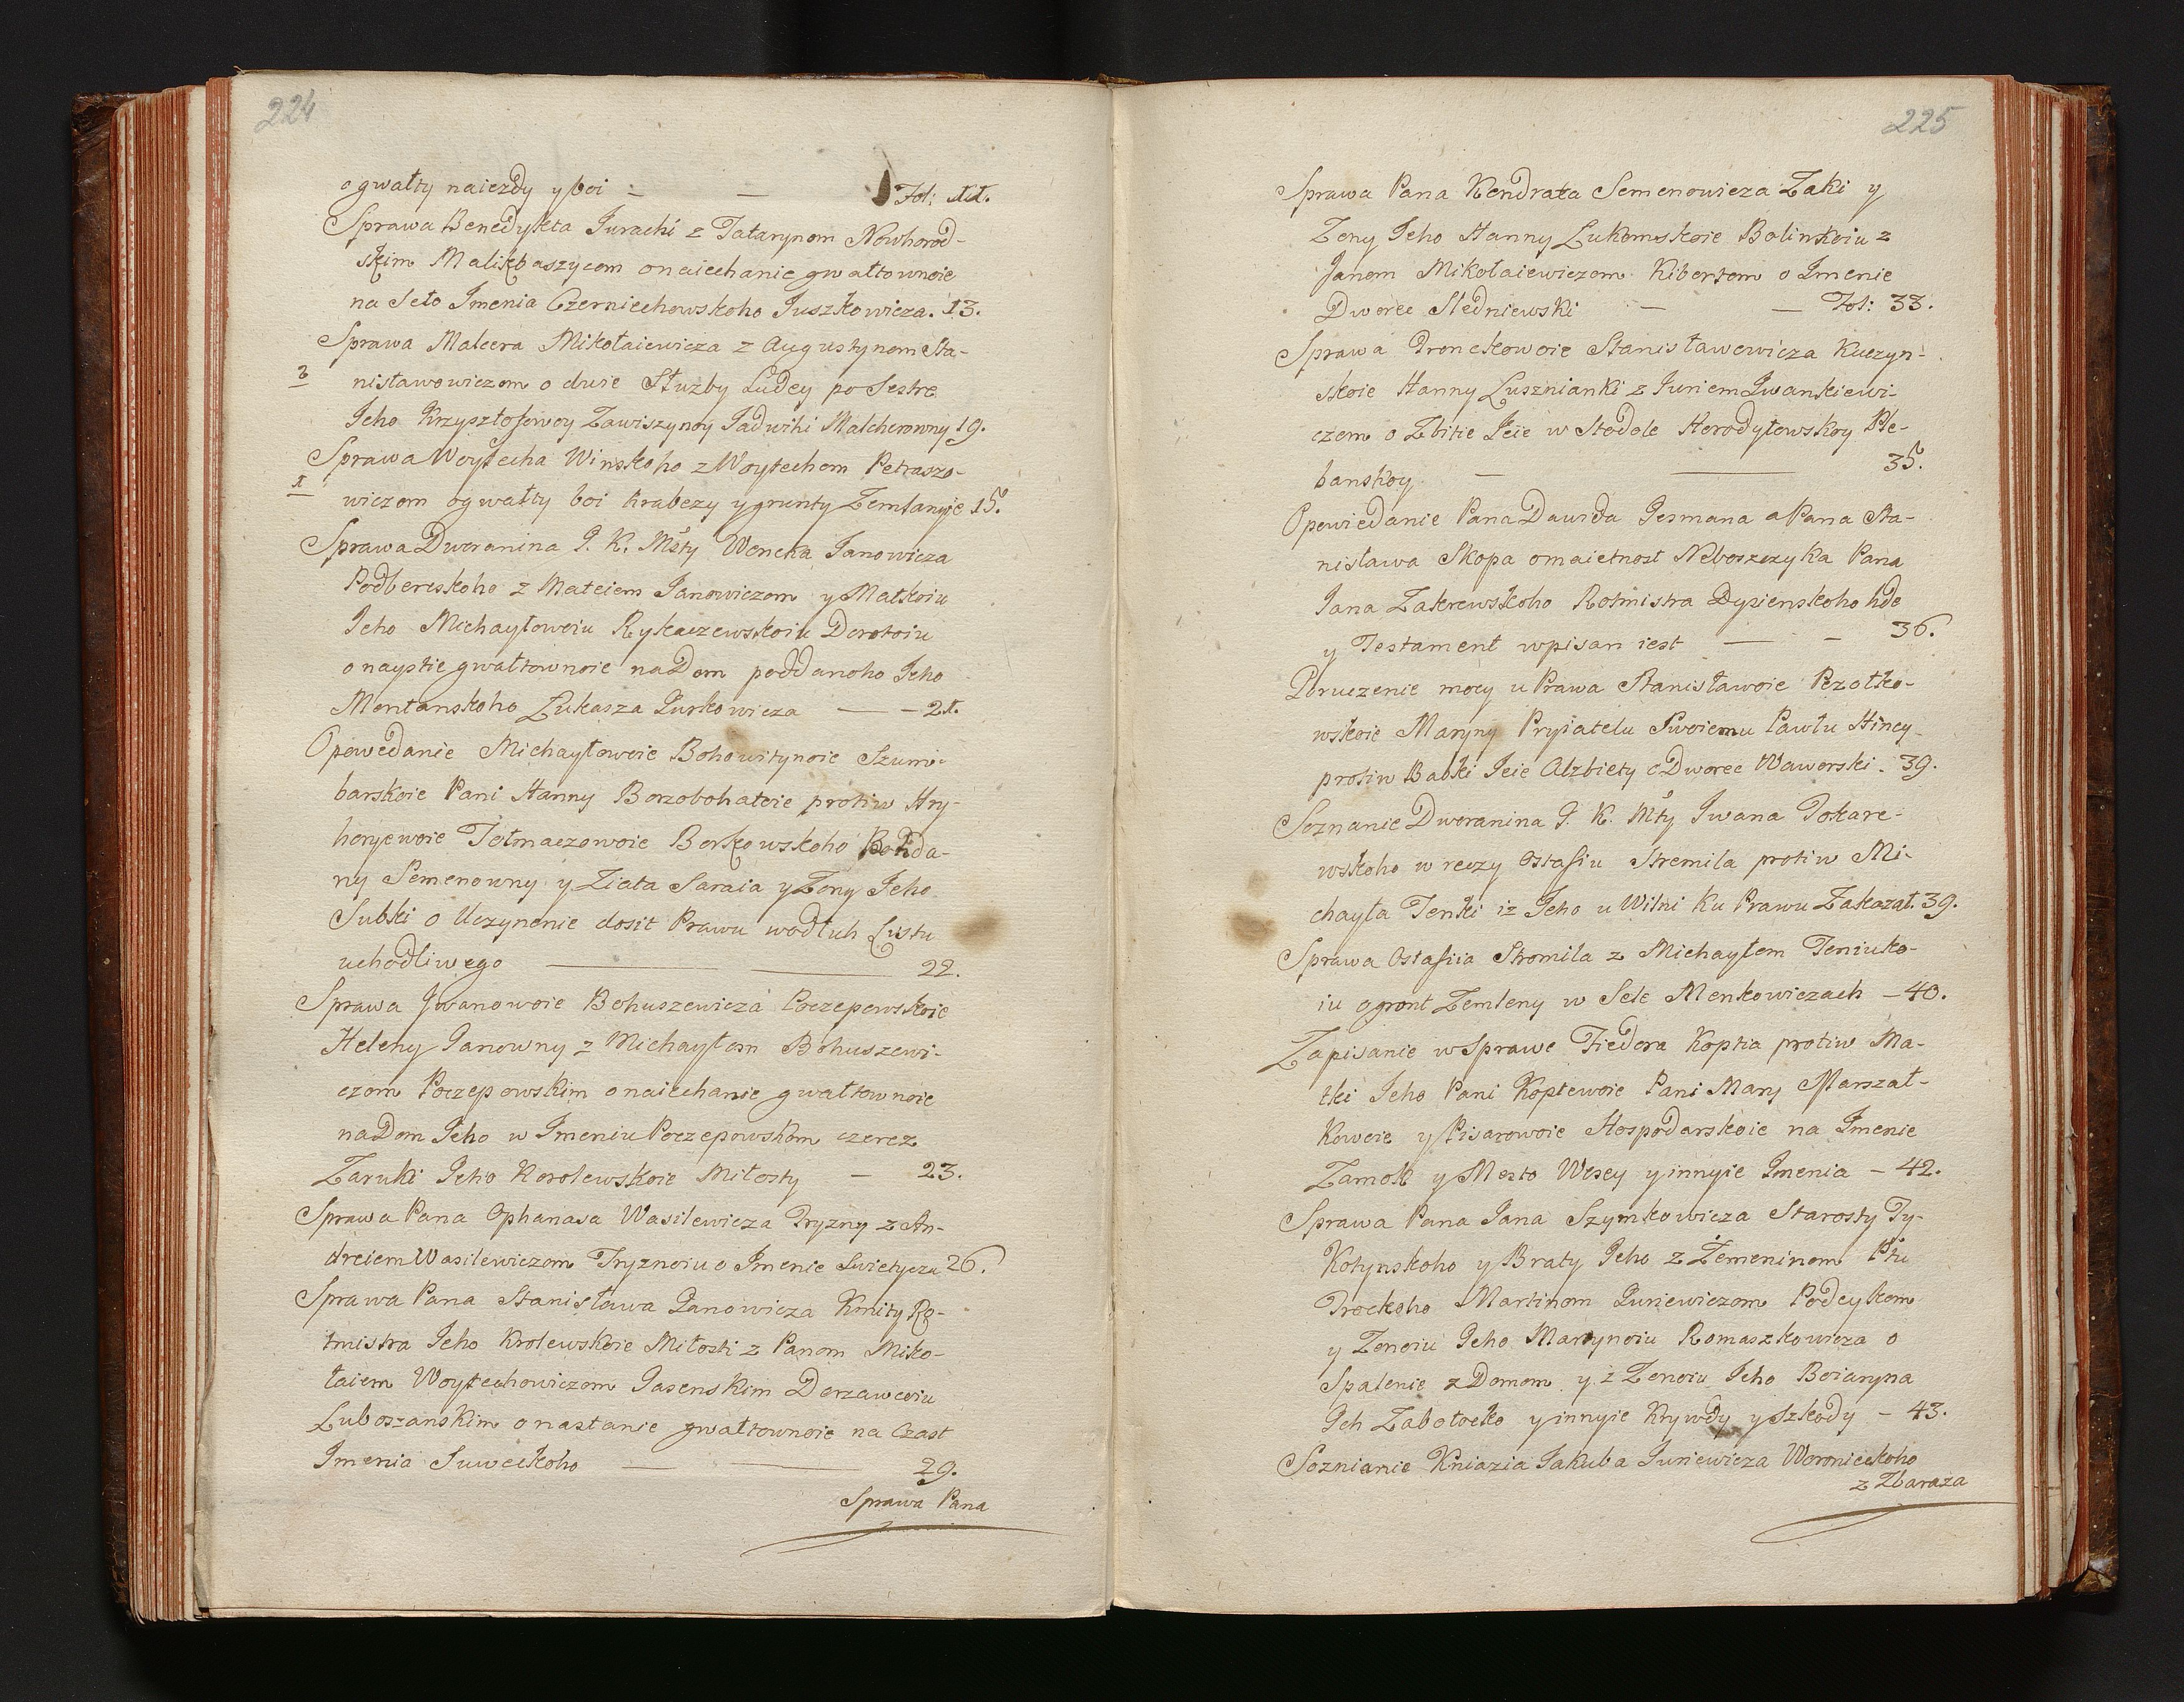 224
o gwałty naiezdy y boi — — Fol: 11.
Sprawa Benedykta Jurachi z Tatarynom Nowhorod-
skim Malikbaszycom o naiechanie gwałtownoie
na Seło Jmenia Czerniechowskoho Juszkowicza. 13.
Sprawa Malcera Mikołaiewicza z Augustynom Sta-
2 nisławowiczom o dwie Służby Ludey po Sestre
Jeho Krzysztofowoy Zawiszynoy Jadwihi Malcherowny 19.
Sprawa Woytecha Winskoho z Woytechom Petraszo-
1 wiczom o gwałty boi hrabezy y grunty Zemlanyie 15.
Sprawa Dworanina J. K. Mśty Woncka Janowicza
Podbereskoho z Mateiem Janowiczom y Matkoiu
Jeho Michayłowoiu Rykaczewskoiu Dorotoiu
o nayście gwałtownoie na Dom poddanoho Jeho
Montanskoho Łukasza Jurkowicza — — 21.
Opowedanie Michayłowoie Bohowitynoie Szum-
barskoie Pani Hanny Borzobohatoie protiw Hry-
horjewoie Tołmaczowoie Borkowskoho Bohda-
ny Semenowny y Ziata Saraia y Zony Jeho
Subki o Uczynenie dosit Prawu wodłuh Listu
uhodliwego — 22.
Sprawa Jwanowoie Bohuszewicza Poczepowskoie
Heleny Janowny z Michayłom Bohuszewi-
czom Poczepowskim o naiechanie gwałtownoie
na Dom Jeho w Jmeniu Poczepowskom czerez
Zaruki Jeho Korolewskoie Miłosty — 23.
Sprawa Pana Ophanasa Wasilewicza Tryzny z An-
dreiem Wasilewiczom Tryznoiu o Jmenie Swietycza 26.
Sprawa Pana Stanisława Janowicza Kmity Ro-
tmistra Jeho Krolewskoie Miłosti z Panom Miko-
łaiem Woytechowiczom Jasenskim Derzawcoiu
Luboszanskim o nasłanie gwałtownoie na Czast
Jmenia Suweckoho — — 29.
Sprawa Pana
225
Sprawa Pana Kendrata Semenowicza Zaki y
Zony Jeho Hanny Lukomskoie Bolinkoiu z
Janom Mikołaiewiczom Kibortom o Jmenie
Dworec Sledniewski — — Fol: 33.
Sprawa Pronckowoie Stanisławowicza Kuczyn-
skoie Hanny Lusznianki z Juriem Jwankiewi-
czom o Zbitie Jeie w Stodole Horodyłowskoy Ple-
banskoy — — 35.
Opowiedanie Pana Dawida Jesmana a Pana Sta-
nisława Skopa o maietnost Neboszczyka Pana
Jana Zakrewskoho Rotmistra Dysienskoho hde
y Testament wpisan iest — — 36.
Poruczenie mocy u Prawa Stanisławoie Pzotko-
wskoie Maryny Pryiatelu Swoiemu Pawłu Hincy
protiw Babki Jeie Alzbiety o Dworec Waworski. 39.
Soznanie Dworanina J. K. Mśty Jwana Tokare-
wskoho w reczy Ostafiu Stremila protiw Mi-
chayła Tenki iz Jeho u Wilni Ku Prawu Zakazał. 39.
Sprawa Ostafiia Stromila z Michayłem Teniuko-
iu o gront Zemleny w Sele Menkowiczach — 40.
Zapisanie w Sprawe Fiedora Koptia protiw Ma-
tki Jeho Pani Koptewoie Pani Mary Marszał-
kowoie y Pisarowoie Hospodarskoie na Jmenie
Zamok y Mesto Wsey y innyie Jmenia — 42.
Sprawa Pana Jana Szymkowicza Starosty Ty-
kotynskoho y Braty Jeho z Żemeninom Ptu
Trockoho Martinom Juriewiczom Podcykom
y Zonoiu Jeho Martynoiu Romaszkowicza o
Spalenie z Domom y z Zonoiu Jeho Boiaryna
Jch Zabołocko y innyie Krywdy y Szkody — 43.
Soznianie Kniazia Jakuba Juriewicza Woronieckoho
z Zbaraża